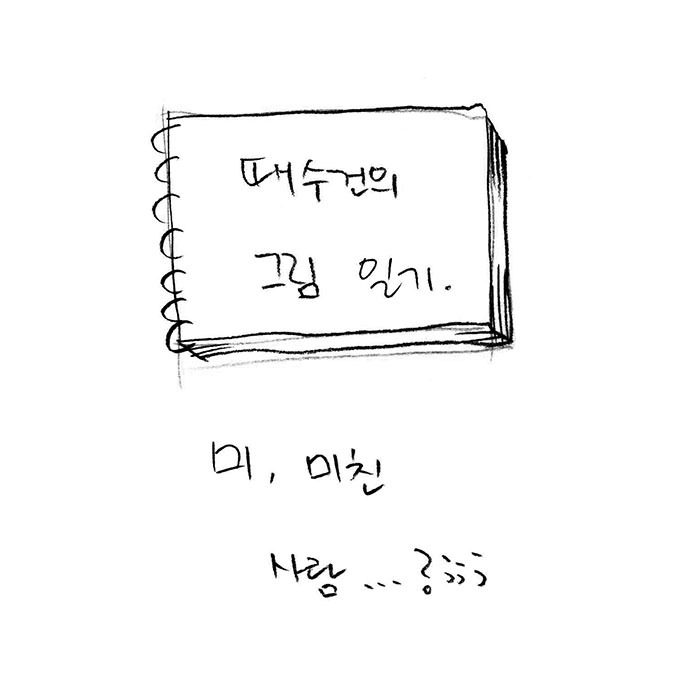 때수건의
그림 일기.
미, 미친
사람...?;;;